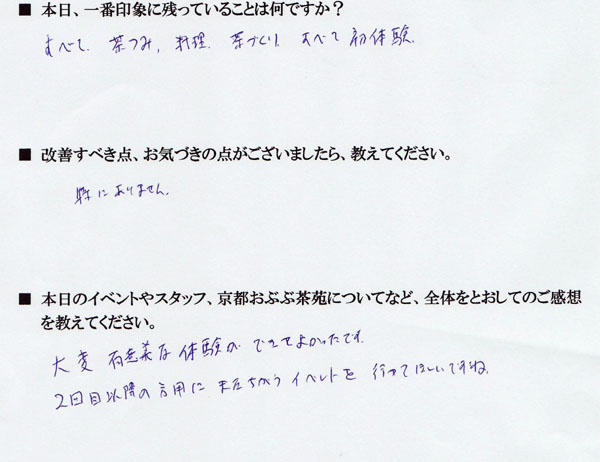 ■ 本日、一番印象に残っていることは何ですか？
すべて。茶つみ, 料理. 茶づくり すべて 初体験.
■ 改善すべき点、お気づきの点がございましたら、教えてください。
特にありません.
■ 本日のイベントやスタッフ、京都おぶぶ茶苑についてなど、全体をとおしてのご感想
を教えてください。
大変 有意義な 体験が できてよかったです.
2回目以降の 用に またちがう イベントを 行ってほしいですね.